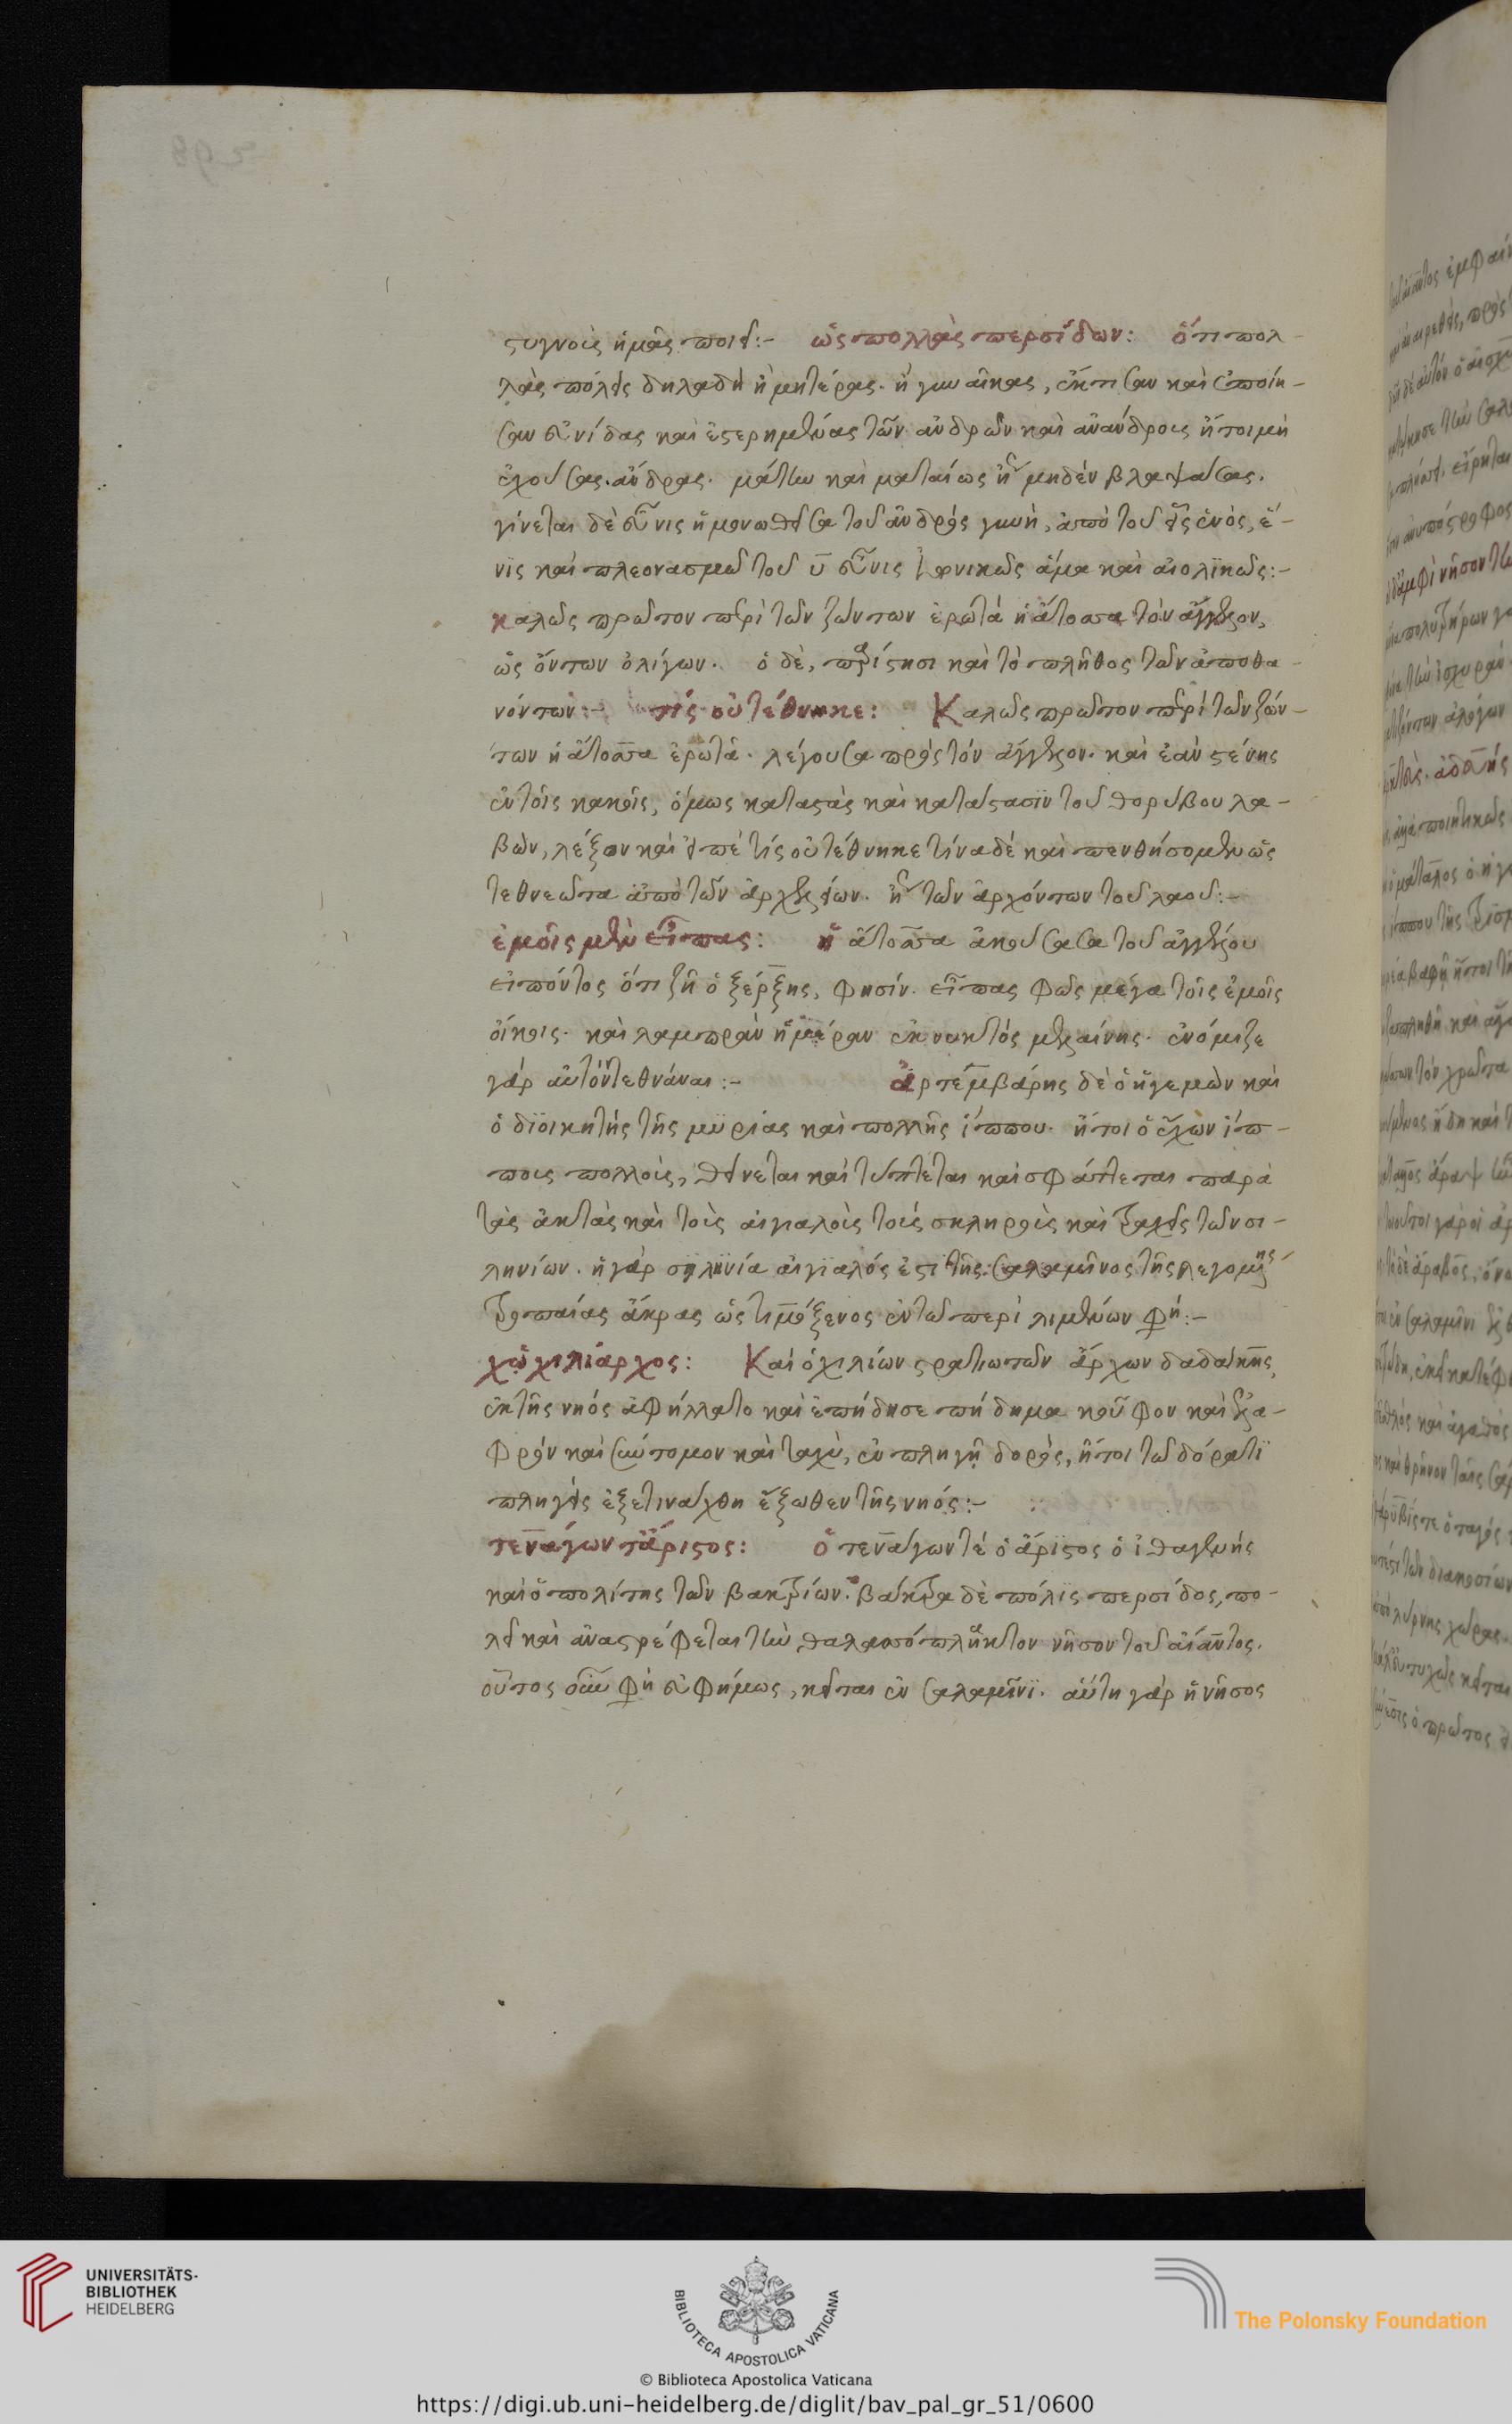 στυγνοὺς ἡμᾶς ποιεῖ:- ὡς πολλὰς περσίδων: ὅτι πολ-
λὰς πόλεις δηλαδὴ ἢ μητέρας. ἢ γυναῖκας, ἔκτισαν καὶ ἐποίη-
σαν εὔνιδας καὶ ἐστερημένας τῶν ἀνδρῶν καὶ ἀνάνδρους ἤτοι μὴ
ἐχούσας ἄνδρας. μάτην καὶ ματαίως ἢ μηδὲν βλαψάσας.
γίνεται δὲ εὖνις ἡ μονωθεῖσα τοῦ ἀνδρός γυνὴ, ἀπὸ τοῦ εἷς ἑνὸς, ἕ-
νις καὶ πλεονασμῶ τοῦ υ εὖνις ἰωνικῶς ἅμα καὶ αἰολικῶς:-
καλῶς πρῶτον περὶ τῶν ζώντων ἐρωτᾶ ἡ ἄτοσσα τὸν ἄγγελον,
ὡς ὄντων ὀλίγων. ὁ δὲ, παρίστησι καὶ τὸ πλῆθος τῶν ἀποθα-
νόντων:- τίς οὐ τέθνηκε: Καλῶς πρῶτον περὶ τῶν ζών-
των ἡ ἄτοσσα ἐρωτᾶ. λέγουσα πρὸς τὸν ἄγγελον. καὶ ἐὰν στένης
ἐν τοῖς κακοῖς, ὅμως καταστὰς καὶ κατάστασιν τοῦ θορύβου λα-
βὼν, λέξον καὶ εἰπὲ τίς οὐ τέθνηκε τίνα δὲ καὶ πενθήσομεν ὡς
τεθνεῶτα ἀπὸ τῶν ἀρχελείων. ἢ τῶν ἀρχόντων τοῦ λαοῦ:-
ἐμοῖς μὲν εἶπας: ἡ ἄτοσσα ἀκούσασα τοῦ ἀγγέλου
εἰπόντος ὅτι ζῆ ὁ ξέρξης, φησίν. εἶπας φῶς μέγα τοῖς ἐμοῖς
οἴκοις. καὶ λαμπρὰν ἡμέραν ἐκ νυκτός μελαίνης. ἐνόμιζε
γάρ αὐτόν τεθνάναι:- ἀρτεμβάρης δὲ ὁ ἡγεμὼν καὶ
ὁ διοικητής τῆς μυρίας καὶ πολλῆς ἵππου. ἤτοι ὁ ἔχων ἵπ-
πους πολλούς, θείνεται καὶ τύπτεται καὶ σφάττεται παρὰ
τὰς ἀκτὰς καὶ τοὺς αἰγιαλοὺς τοὺς σκληροὺς καὶ τραχεῖς τῶν σι-
ληνίων. ἡ γάρ σιληνία αἰγιαλός ἐστι τῆς σαλαμῖνος τῆς λεγομένης
τροπαίας ἄκρας ὡς τιμόξενος ἐν τῶ περὶ λιμένων φη:-
χὠ χιλίαρχος: Καὶ ὁ χιλίων στρατιωτῶν ἄρχων δαδάκης,
ἐκ τῆς νηός ἀφήλλατο καὶ ἐπήδησε πήδημα κοῦφον καὶ ἐλα-
φρόν καὶ σύντομον καὶ ταχὺ, ἐν πληγῆ δορός, ἤτοι τῶ δόρατι
πληγεὶς ἐξετινάχθη ἔξωθεν τῆς νηός:-
τενάγων τἄριστος: ὁ τενάγων τέ ὁ ἄριστος ὁ ἰθαγενής
καὶ ὁ πολίτης τῶν βακτρίων. βάκτρα δὲ πόλις περσίδος, πο-
λεῖ καὶ ἀναστρέφεται τὴν θαλασσόπληκτον νῆσον τοῦ αἴαντος.
οὕτος οὖν φη εὐφήμως, κεῖται ἐν σαλαμῖνι. αὕτη γάρ ἡ νῆσος
UNIVERSITÄTS-
BIBLIOTHEK
HEIDELBERG
BIBLIOTECA APOSTOLICA VATICANA
The Polonsky Foundation
© Biblioteca Apostolica Vaticana
https://digi.ub.uni-heidelberg.de/diglit/bav_pal_gr_51/0600